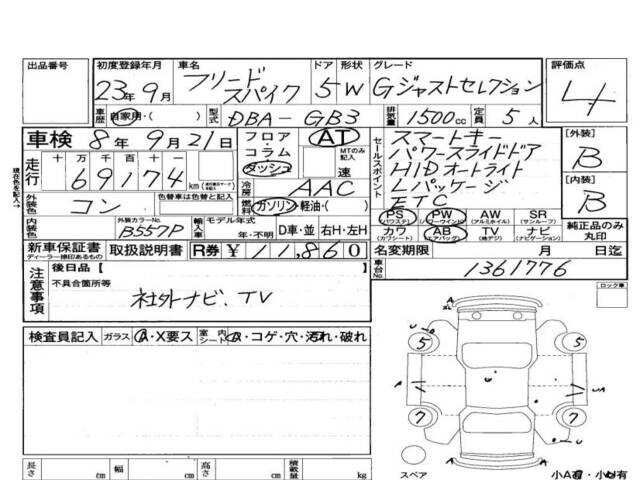 出品番号
初度登録年月 23年9月
車名 フリード スパイク
ドア 形状 5W
グレード Gジャストセレクション
評価点 4
車歴 自家用・( )
型式 DBA-GB3
排気量 1500cc
定員 5人
車検 8年9月21日
フロア・コラム・ダッシュ
AT
MTのみ記入 速
セールスポイント
スマートキー
パワースライドドア
HIDオートライト
Lパッケージ
ETC
[外装] B
[内装] B
走行 十万千百十一
69174 km
現在色を記入→
外装色 コン
色替車は色替と記入
冷房 AAC
燃料 ガソリン・軽油・( )
PS (パワステ) PW (パワーウインド) AW (アルミホイル) SR (サンルーフ)
カワ (カワシート) AB (エアバッグ) TV (地デジ) ナビ (ナビゲーション)
純正品のみ丸印
内装色
外装カラーNo. B557P
輸入車
モデル年式 年・不明
D車・並 右H・左H
新車保証書
ディーラー捺印あるもの
取扱説明書
R券 ¥11,860
名変期限 月 日迄
車台No. 1361776
注意事項
後日品 [ ]
不具合箇所等
社外ナビ、TV
ロック車
検査員記入 ガラス A・X要ス 室内シート コゲ・穴・汚れ・破れ
A
U
5 5
A
U
A
7 7
スペア
長さ cm 幅 cm 高さ cm 積載量 kg
小A有・小U有